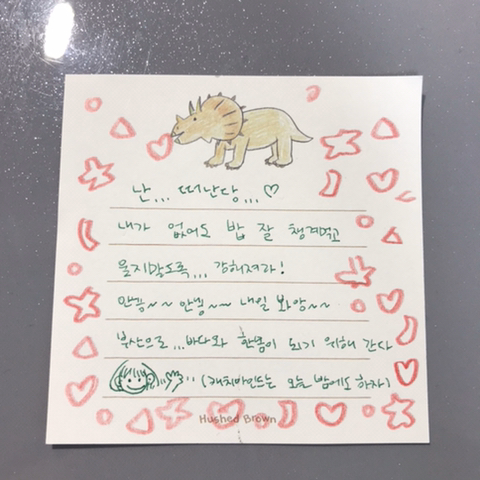 난... 떠난당...♡
내가 없어도 밥 잘 챙겨먹고
울지말도록... 강해져라!
안뇽~~ 안뇽~~ 내일 봐앙~~
부산으로...바다와 한몸이 되기 위해 간다
(캐치마인드는 오늘 밤에도 하자)
Hushed Brown